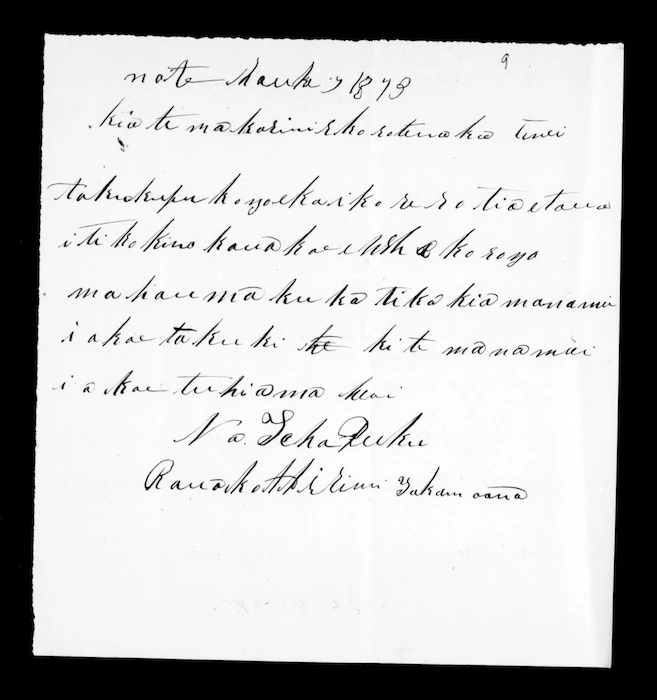 9
note Maehe 7 1873
kia te makarini e koro tenakoe tenei
takukupu koyoe kaikorerotia e taua
i ti kokino kauakoe e Whakoroyo
mahau māku ka tika kia manamu
i akoe taku ki he ki te manamai
i a koe tuhia mai heoi
Na. Teha Puku
Raua ko Hirini Takamoana